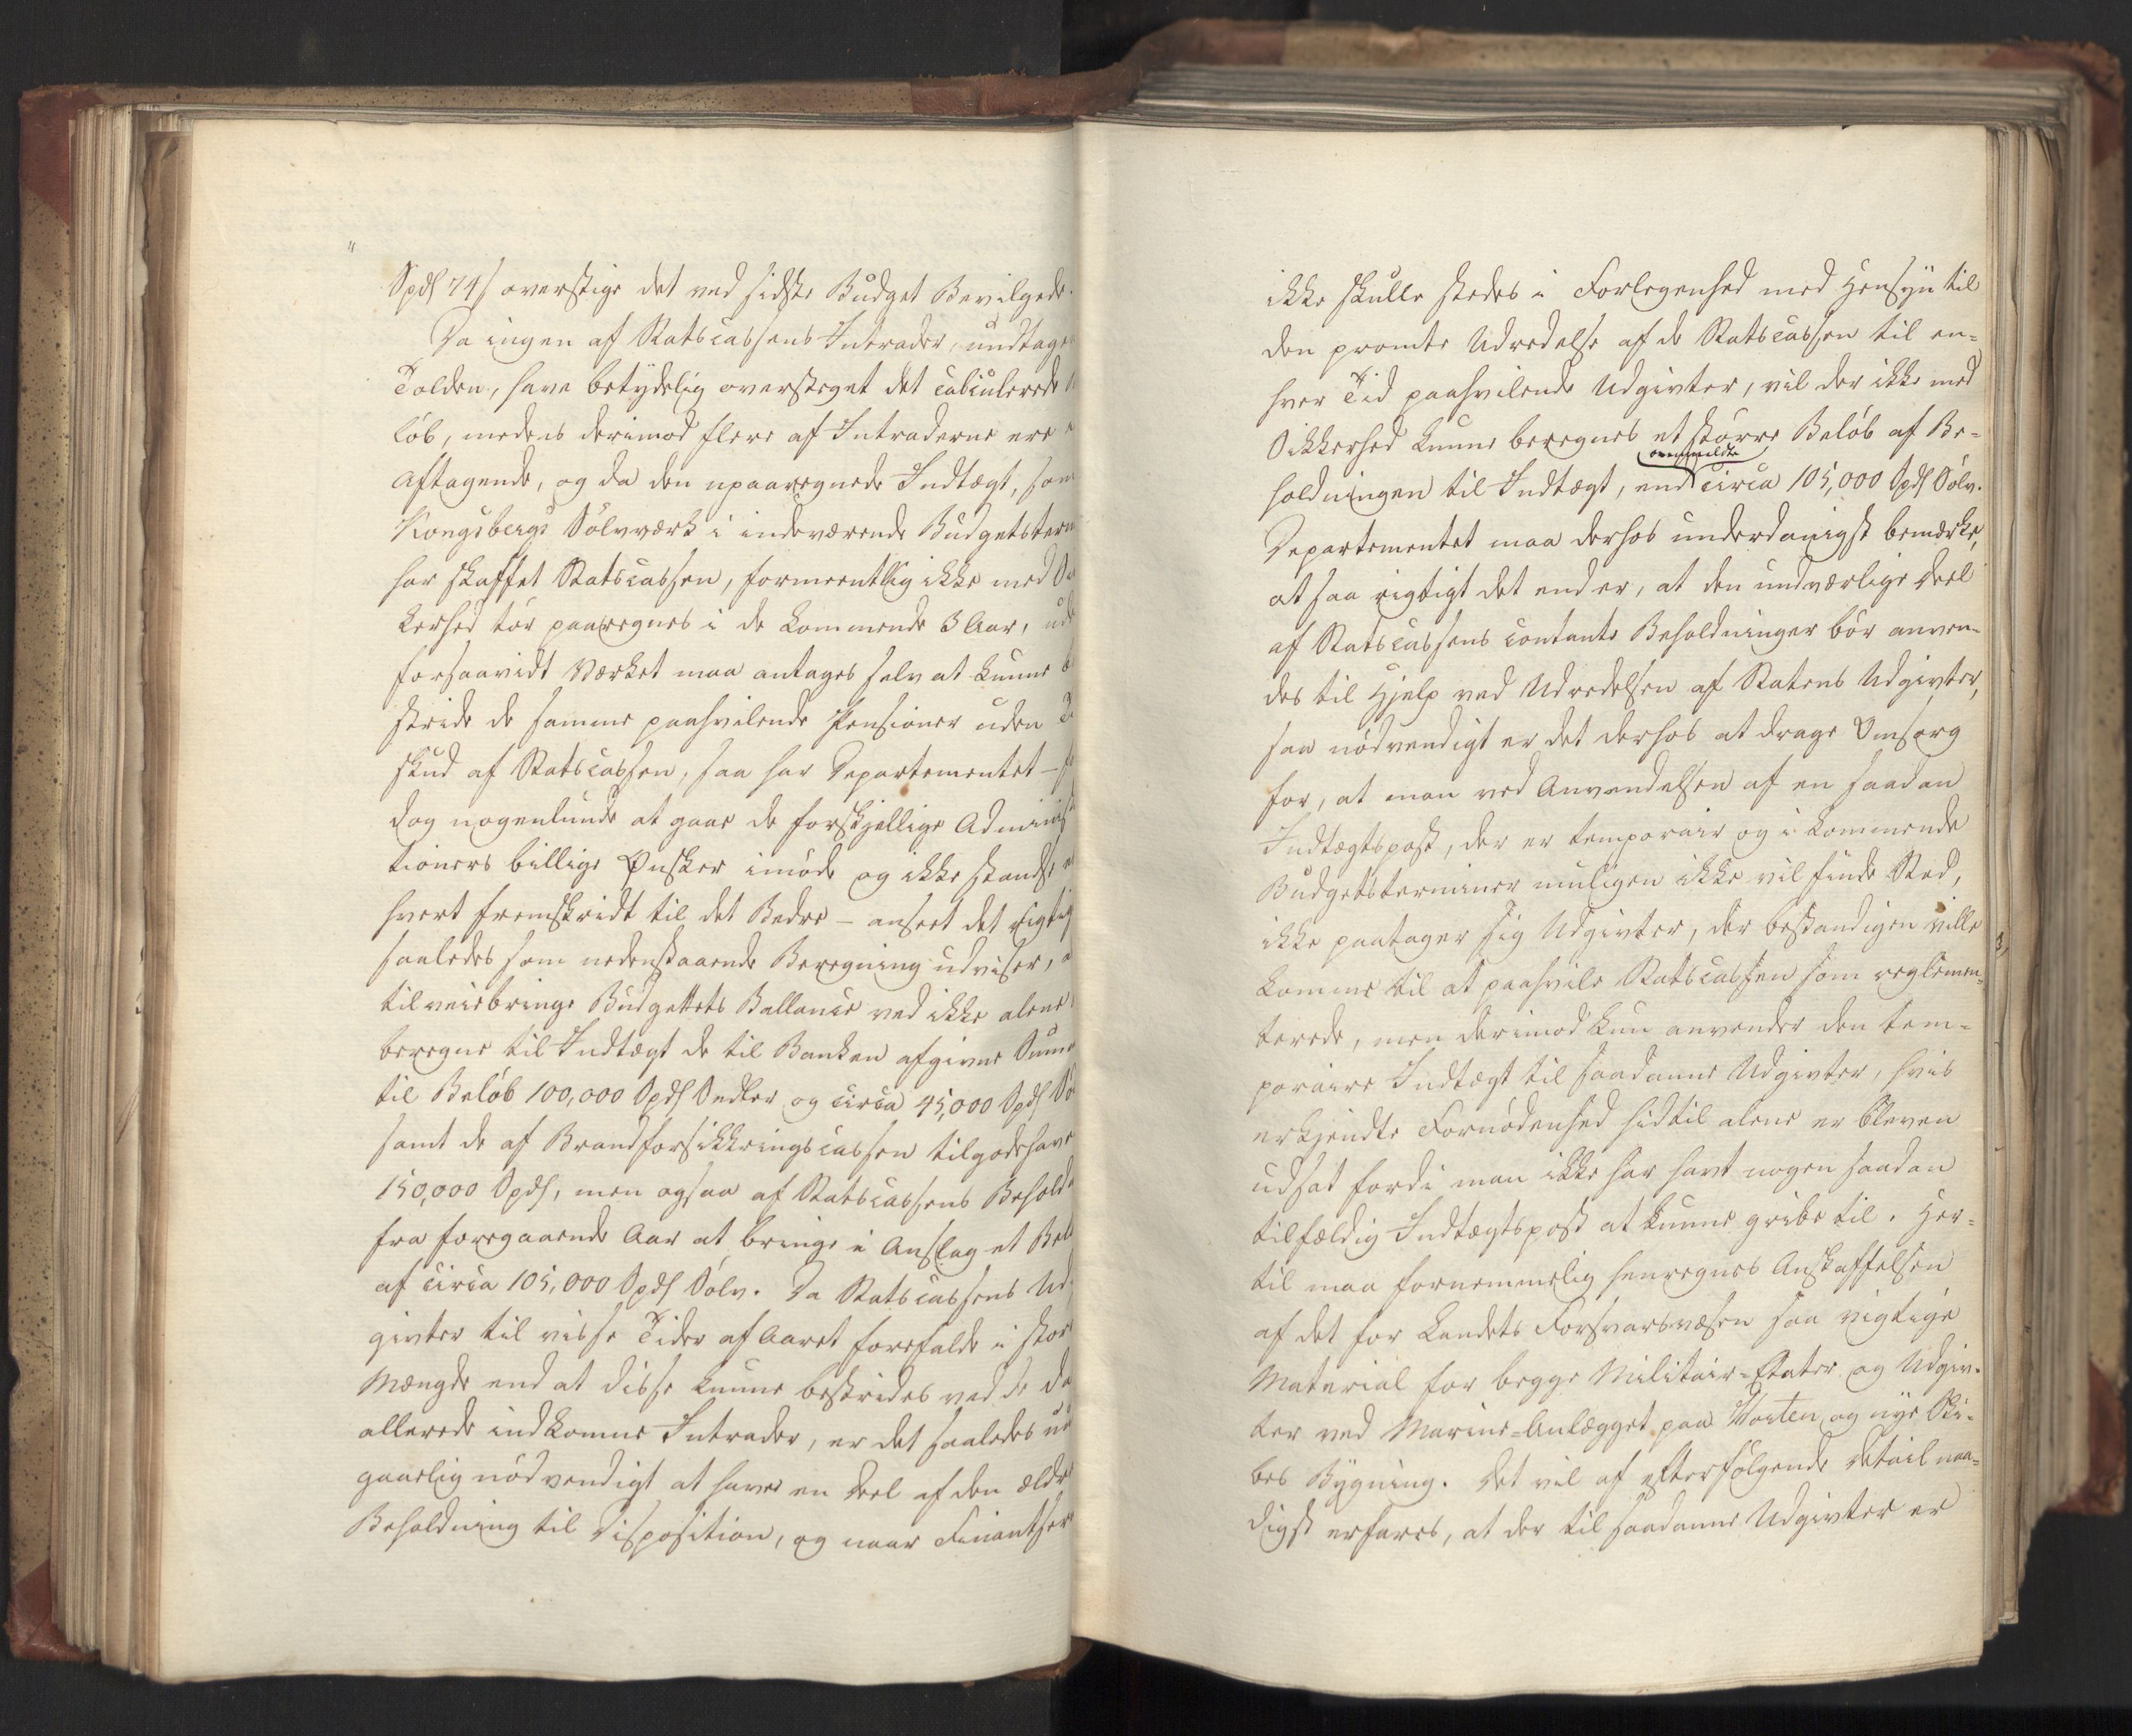 Spd 74 s overstige det ved sidste Budget Bevilgede.
Da ingen af Statscassens Intrader, undtage
Tolden, have betydelig oversteget det calculerede
løb, medens derimod flere af Intraderne ere
Aftagende, og da den upaaregnede Indtægt, som
Kongsbergs Sølvværk i indeværende Budgetsterm
har skaffet Statscassen, formeentlig ikke med
kerhed tør paaregnes i de kommende 3 Aar,
forsaavidt Værket maa antages selv at kunne
stride de samme paahvilende Pensioner uden
skud af Statscassen, saa har Departementet –
dog nogenlunde at gaae de forskjellige Adminis
tioners billige Ønsker imøde og ikke standse
hvert Fremskridt til det Bedre – anseet det rigtig
saaledes som nedenstaaende Beregning udviser,
tilveiebringe Budgettets Ballance ved ikke alene
beregne til Indtægt de til Banken afgivne Summe
til Beløb 100,000 Spd Sedler og circa 45,000 Spd Sø
samt de af Brandforsikkringscassen tilgodehave
150,000 Spd, men ogsaa af Statscassens Behold
fra foregaaende Aar at bringe i Anslag et Bel
af circa 105,000 Spd Sølv. Da Statscassens Ud
givter til visse Tider af Aaret forefalde i stør
Mængde end at disse kunne bestrides ved de da
allerede indkomne Intrader, er det saaledes
gaaelig nødvendigt at have en Deel af den ældr
Beholdning til Disposition, og naar Finantser
ikke skulle stedes i Forlegenhed med Hensyn til
den promte Udredelse af de Statscassen til en-
hver Tid paahvilende Udgivter, vil der ikke med
Sikkerhed kunne beregnes et større Beløb af Be-
ovenmeldte
holdningen til Indtægt, end circa 105,000 Spd Sølv.
Departementet maa derhos underdanigst bemærke,
at saa rigtigt det end er, at den undværlige Deel
af Statscassens contante Beholdninger bør anven-
des til Hjelp ved Udredelsen af Statens Udgivter,
saa nødvendigt er det derhos at drage Omsorg
for, at man ved Anvendelsen af en saadan
Indtægtspost, der er temporair og i kommende
Budgetsterminer muligen ikke vil finde Sted,
ikke paatager sig Udgivter, der bestandigen ville
komme til at paahvile Statscassen som reglemen-
terede, men derimod kun anvender den tem-
poraire Indtægt til saadanne Udgivter, hvis
erkjendte Fornødenhed hidtil alene er bleven
udsat fordi man ikke har havt nogen saadan
tilfældig Indtægtspost at kunne gribe til. Her-
til maa fornemmelig henregnes Anskaffelsen
af det for Landets Forsvarsvæsen saa vigtige
Material for begge Militair-Etater og Udgiv-
ter ved Marine-Anlægget paa Horten og nye Ski-
bes Bygning. Det vil af efterfølgende Detail naa-
digst erfares, at der til saadanne Udgivter er